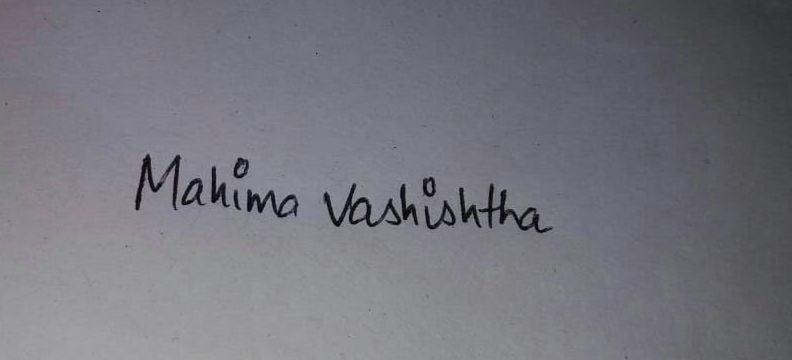 Mahima Vashishtha